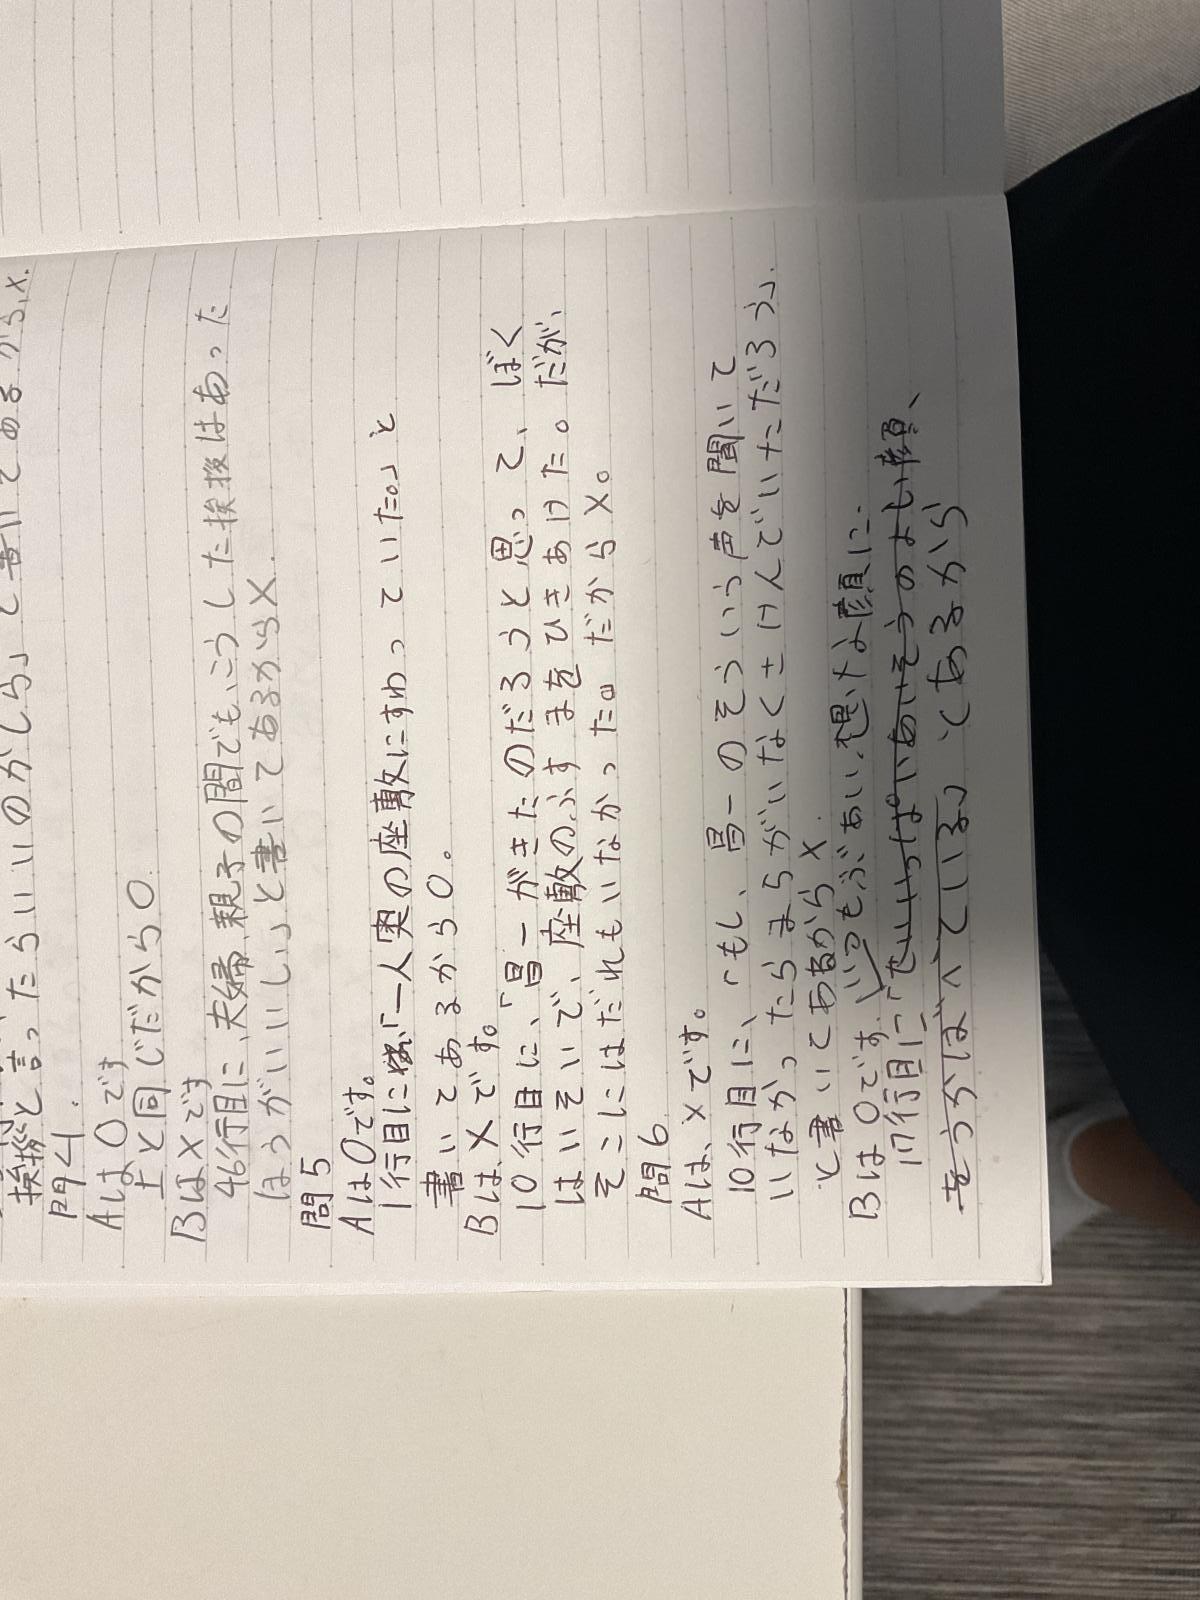 と書いてあるから、x.
挨拶と言ったらいいのかしら」
問4.
Aは〇です
上と同じだから〇.
Bは×です
46行目に、夫婦、親子の間でも、こうした挨拶はあった
ほうがいいしい」と書いてあるから×.
問5
Aは〇です。
1行目に「一人奥の座敷にすわっていた。」と
書いてあるから〇。
Bは、×です。
10行目に、「昌一がきたのだろうと思って、ぼく
はいそいで、座敷のふすまをひきあけた。だが、
そこにはだれもいなかった。だから×。
問6
Aは、×です。
10行目に、「もし、昌一のそういう声を聞いて
いなかったらまちがいなくさけんでいただろう」.
と書いてあるから×.
Bは〇です.いつもぶあい想な顔に
17行目に「せいいっぱいあいそうのよい顔、
をうかばべている」とあるから